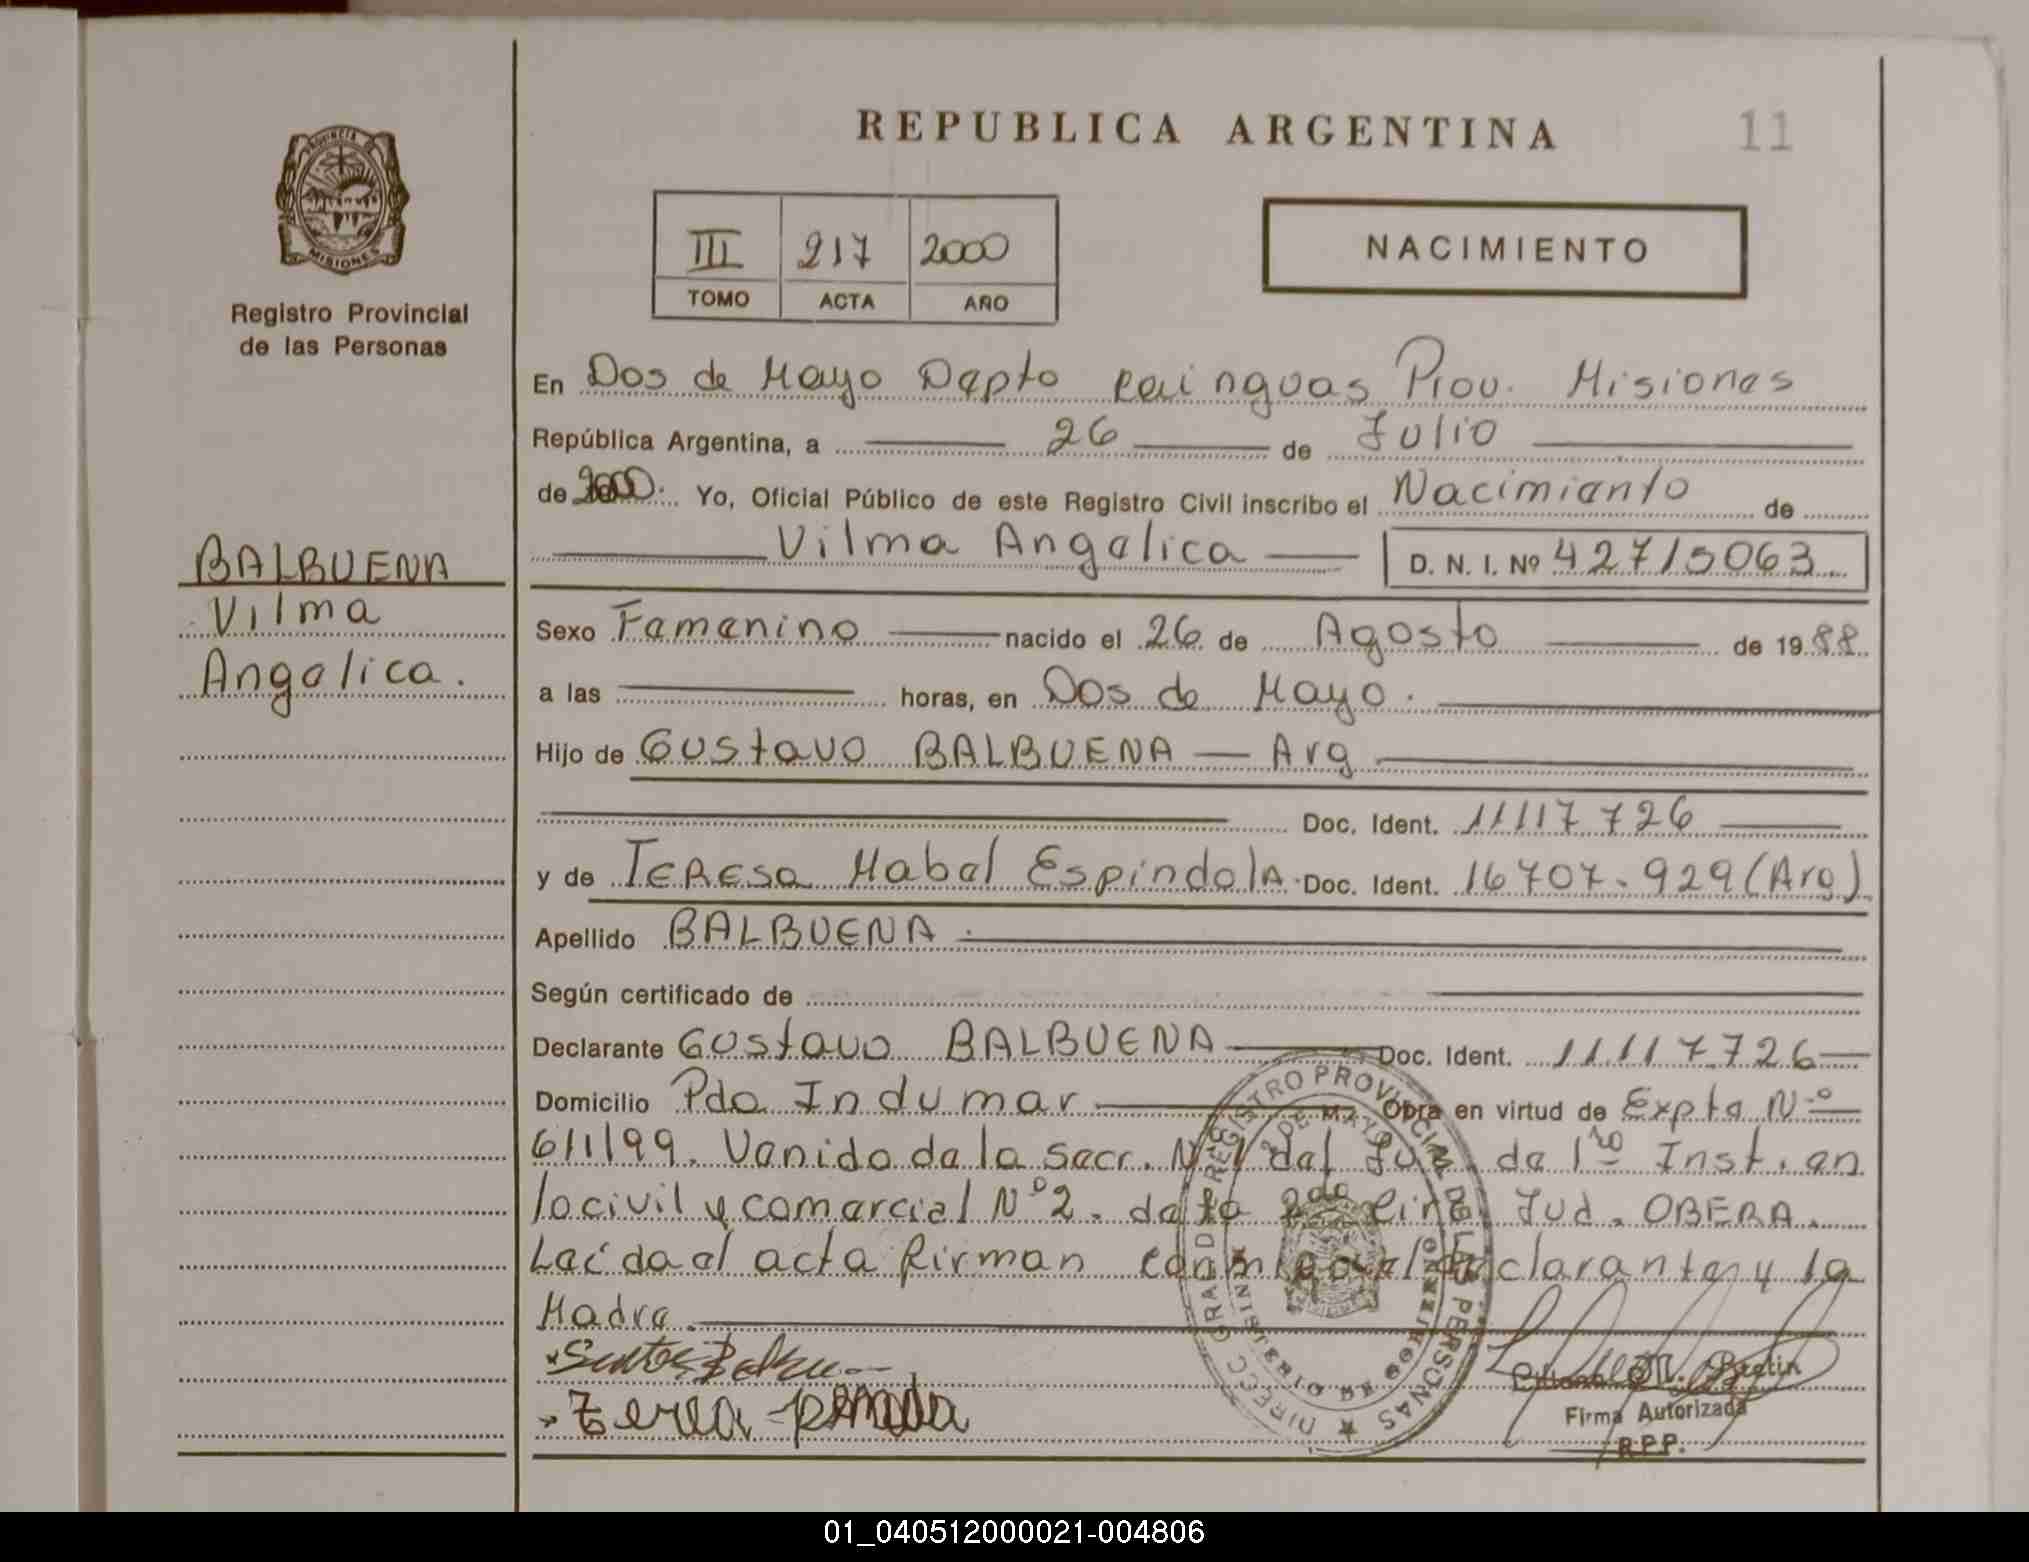 REPUBLICA ARGENTINA
11
PROVINCIA DE
MISIONES
Registro Provincial
de las Personas
III 217 2000
TOMO ACTA AÑO
NACIMIENTO
En Dos de Mayo Depto Cainguas Prov. Misiones
República Argentina, a 26 de Julio
de 2000. Yo, Oficial Público de este Registro Civil inscribo el Nacimiento de
Vilma Angelica D. N. I. Nº 42715063
BALBUENA
Vilma
Angelica.
Sexo Femenino nacido el 26 de Agosto de 1988
a las horas, en Dos de Mayo.
Hijo de Gustavo BALBUENA — Arg
Doc. Ident. 11117726
y de Teresa Mabel Espindola Doc. Ident. 16707.929 (Arg)
Apellido BALBUENA.
Según certificado de
Declarante Gustavo BALBUENA Doc. Ident. 11117726
Domicilio Pdo Indumar Obra en virtud de Expte Nº
611/99. Venido de la Secr. Nº 1 del Juz. de 1ro Inst. en
lo civil y comercial Nº 2. de la 2da Circ. Jud. OBERA.
Leída el acta firman conmigo el declarante y la
Madre.
DIRECC GRAD REGISTRO PROVINCIAL DE LAS PERSONAS
2 DE MAYO
Firma Autorizada
R.P.P.
01_040512000021-004806